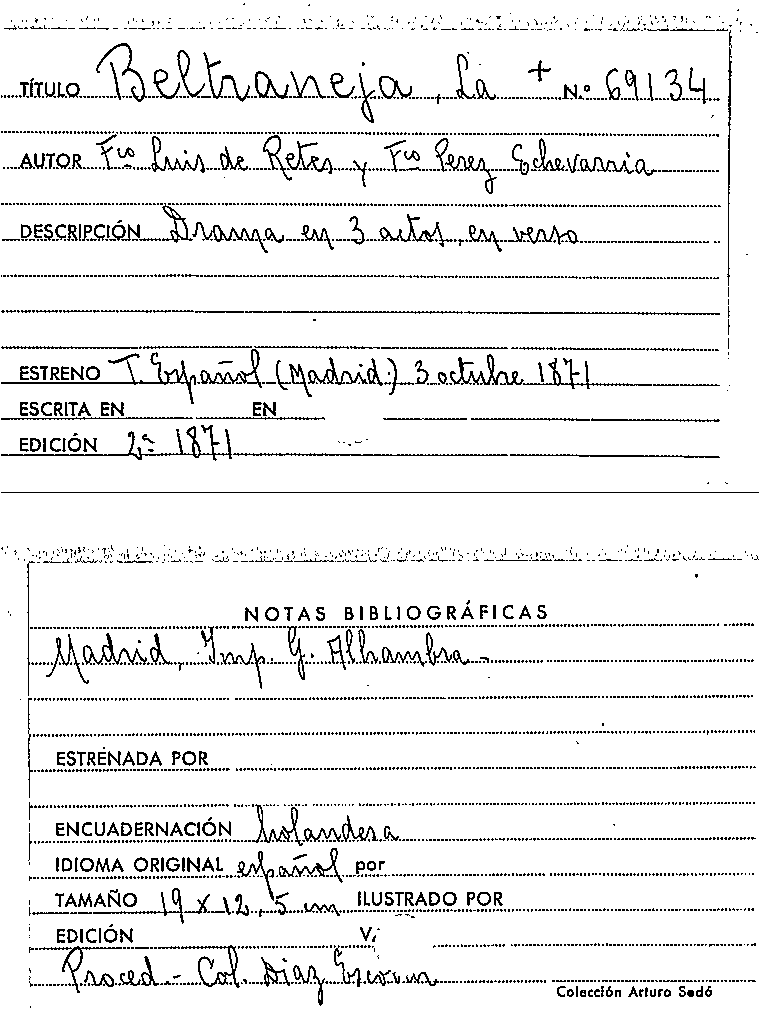 TÍTULO Beltraneja, La + N.º 69134
AUTOR Fco Luis de Retes y Fco Perez Echevarria
DESCRIPCIÓN Drama en 3 actos, en verso
ESTRENO T. Español (Madrid) 3 octubre 1871
ESCRITA EN EN
EDICIÓN 2ª 1871
NOTAS BIBLIOGRÁFICAS
Madrid, Imp. G. Alhambra -
ESTRENADA POR
ENCUADERNACIÓN holandesa
IDIOMA ORIGINAL español por
TAMAÑO 19 x 12,5 cm ILUSTRADO POR
EDICIÓN V.
Proced. - Col. Diaz Escovar
Colección Arturo Sedó